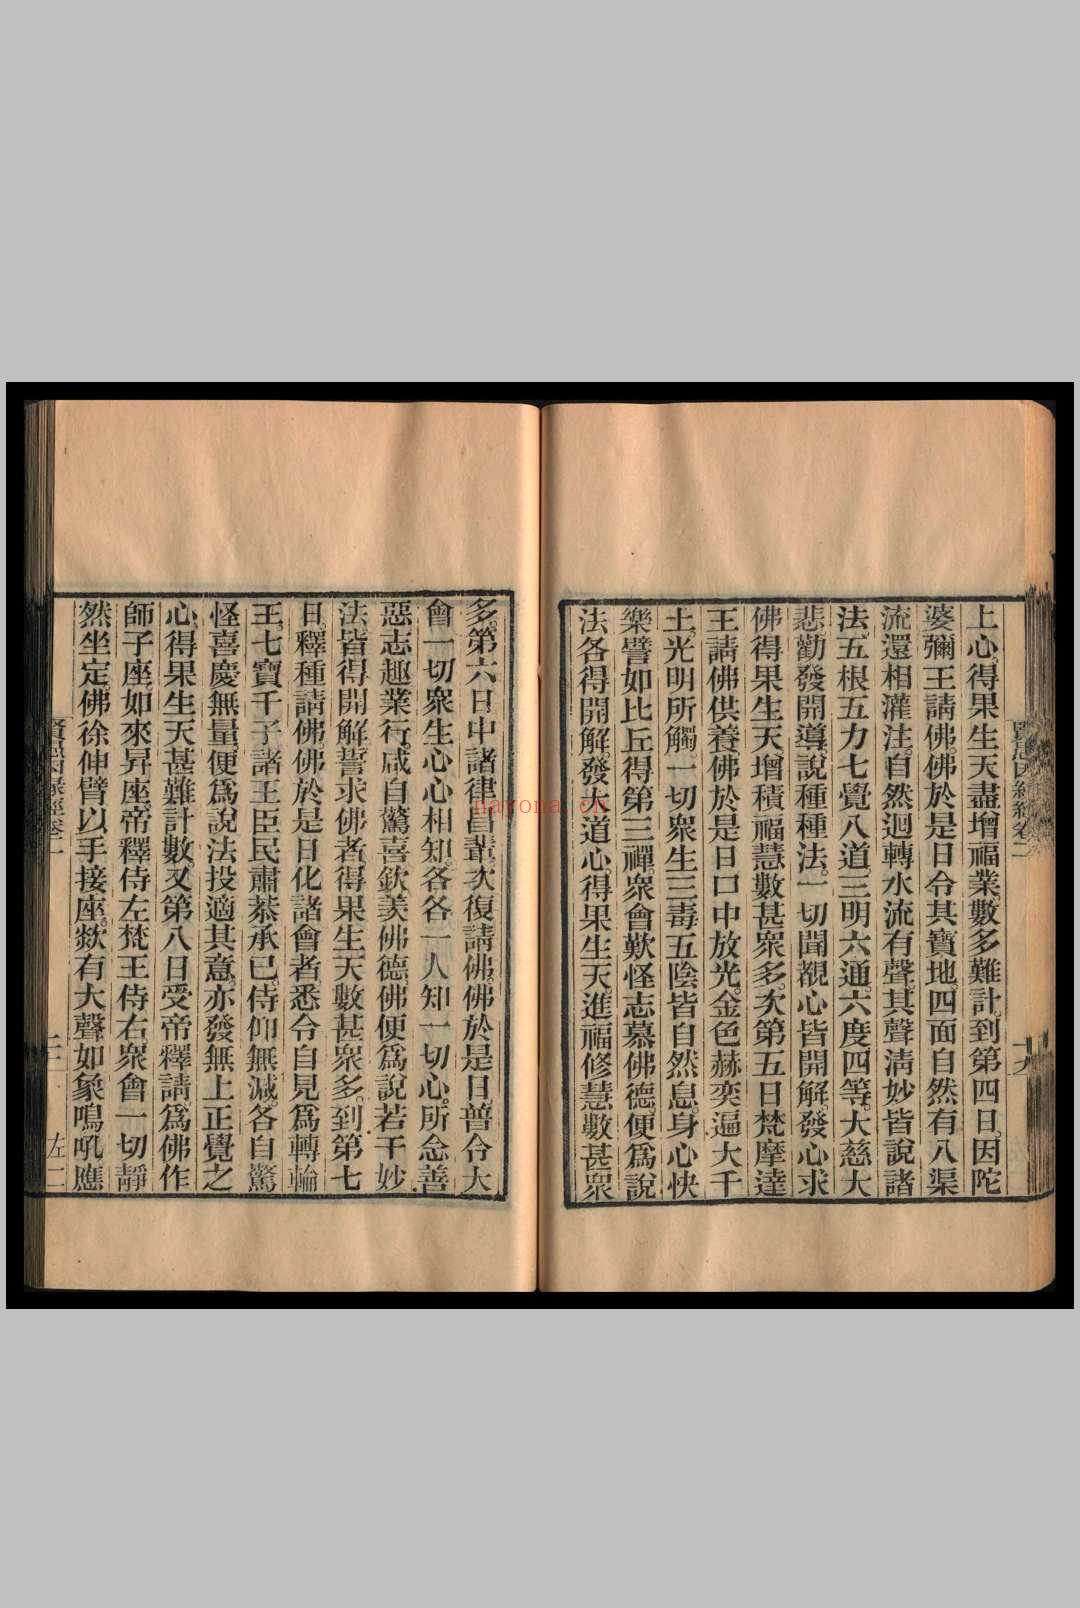 上心得果生天盡增福業數多難計。到第四日。因陀
婆彌王請佛。佛於是日。令其寶地。四面自然有八渠
流還相灌注。自然迴轉。水流有聲。其聲清妙。皆說諸
法。五根五力七覺八道。三明六通。六度四等。大慈大
悲。勸發開導。說種種法。一切聞覩。心皆開解。發心求
佛。得果生天。增積福慧。數甚衆多。次第五日。梵摩達
王。請佛供養。佛於是日。口中放光。金色赫奕。遍大千
土。光明所觸。一切衆生。三毒五陰。皆自然息。身心快
樂。譬如比丘得第三禪。衆會歎怪。志慕佛德。便爲說
法。各得開解。發大道心。得果生天。進福修慧。數甚衆
多。第六日中。諸律昌輩。次復請佛。佛於是日。普令大
會一切衆生。心心相知。各各一人。知一切心。所念善
惡。志趣業行。咸自驚喜。欽羡佛德。佛便爲說若干妙
法。皆得開解。誓求佛者。得果生天。數甚衆多。到第七
日。釋種請佛。佛於是日。化諸會者。悉令自見爲轉輪
王。七寶千子。諸王臣民。肅恭承已。侍仰無減。各自驚
怪。喜慶無量。便爲說法。投適其意。亦發無上正覺之
心。得果生天。甚難計數。又第八日。受帝釋請。爲佛作
師子座。如來昇座。帝釋侍左。梵王侍右。衆會一切。靜
然坐定。佛徐伸臂。以手接座。欻有大聲。如象鳴吼。應
賢愚因緣經卷二
左二